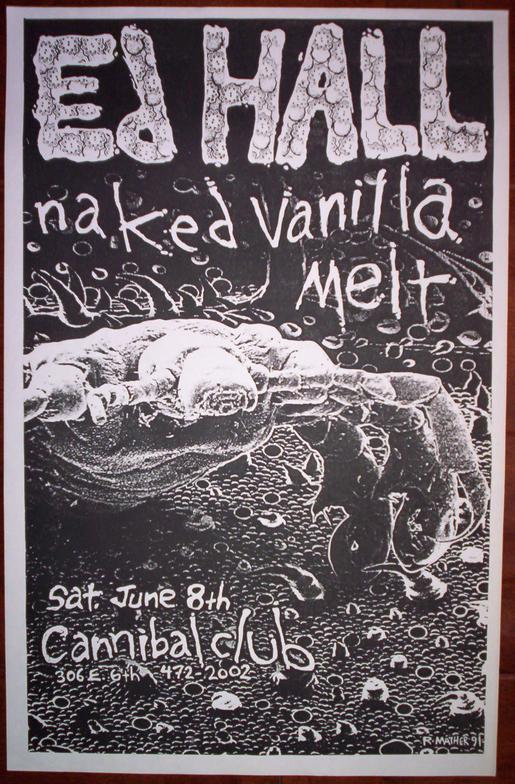 Ed HALL
naked vanilla
melt
Sat. June 8th
Cannibal club
306 E. 6th 472-2002
R. MATHER 91